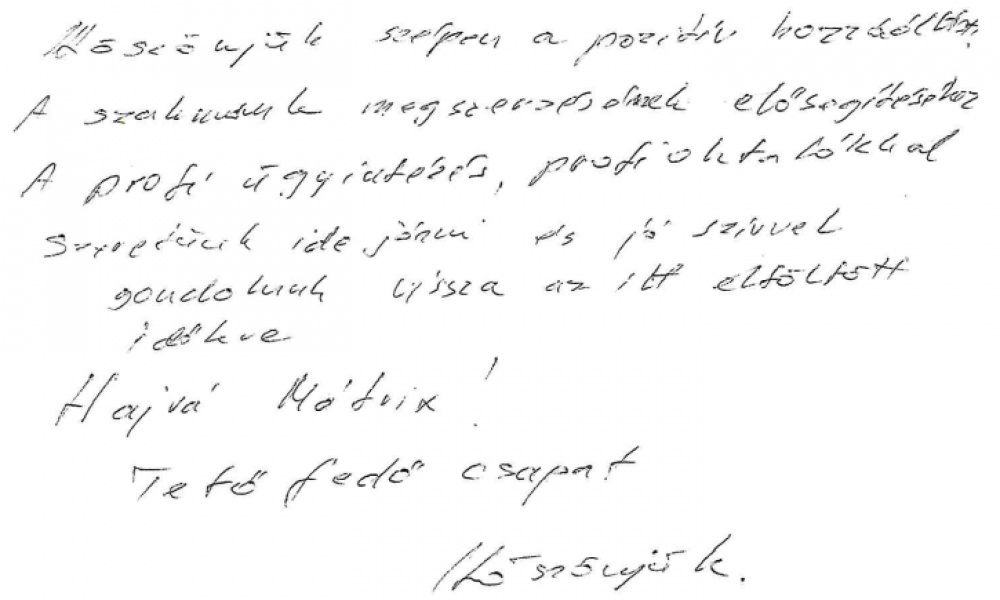 Köszönjük szépen a pozitív hozzáállást.
A szakmánk megszerzésének elősegítéséhez
A profi ügyintézés, profi oktatókkal
Szerettünk ide járni és jó szívvel
gondolunk vissza az itt eltöltött
időkre
Hajrá Mátrix!
Tető fedő csapat
Köszönjük.